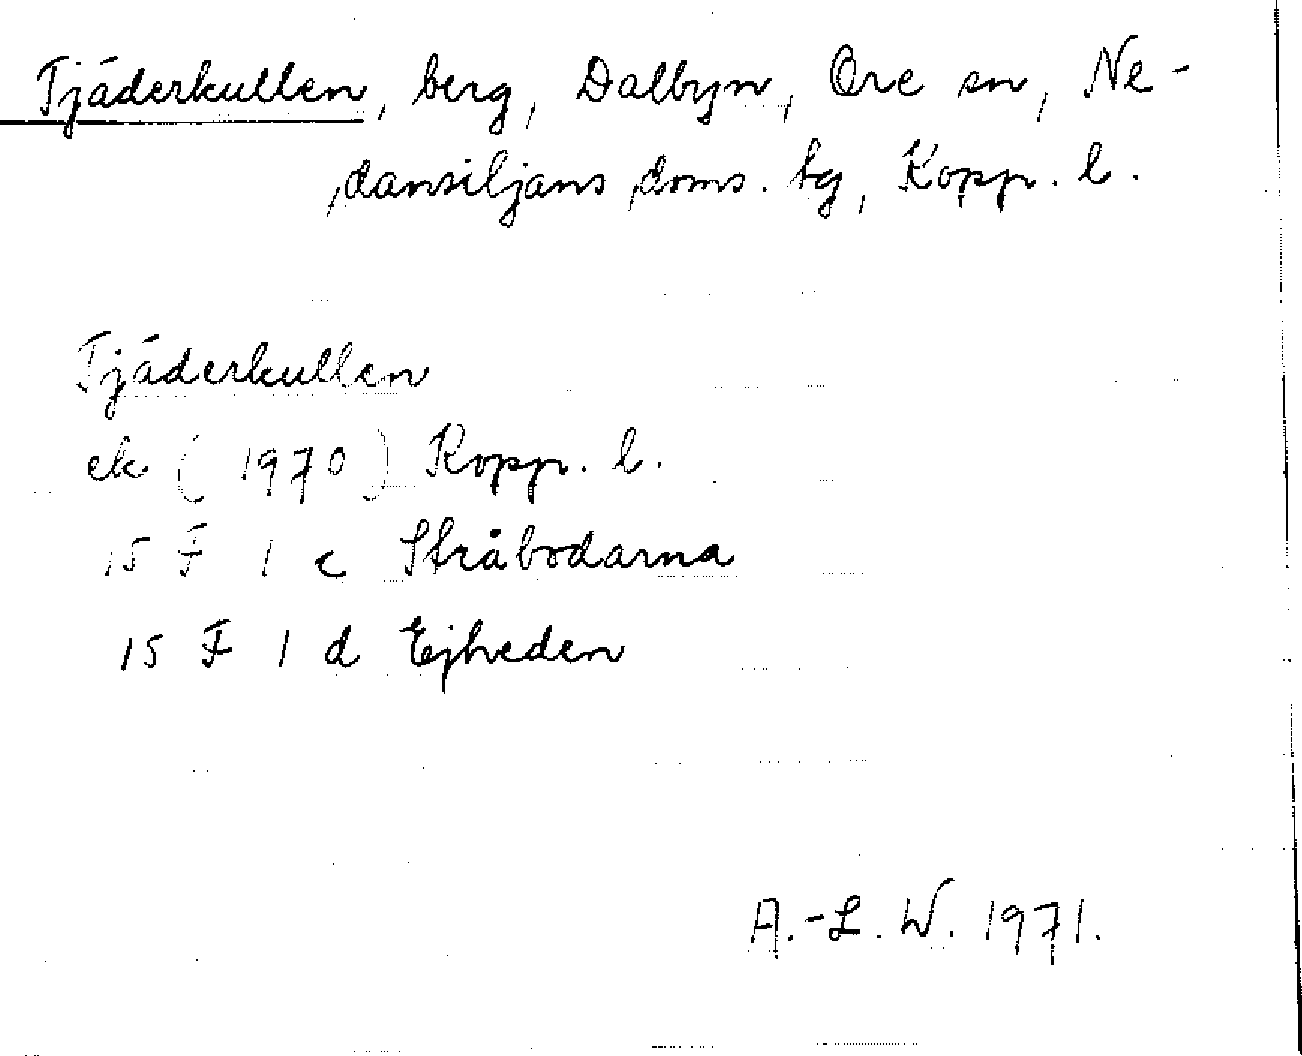 Tjäderkullen, berg, Dalbyn, Ore sn, Ne-
dansiljans doms. tg, Kopp. l.
Tjäderkullen
ek (1970) Kopp. l.
15 F 1 c Stråbodarna
15 F 1 d Ejheden
A.-L. W. 1971.